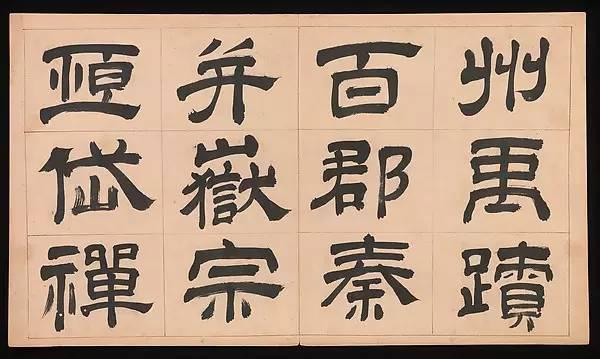 州禹蹟
百郡秦
并嶽宗
恆岱禪